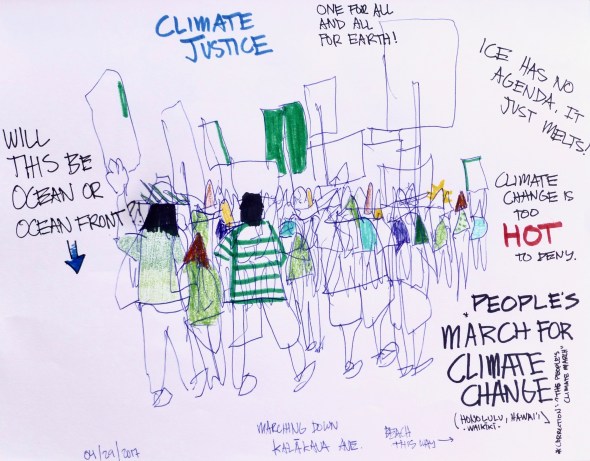 CLIMATE
JUSTICE
ONE FOR ALL
AND ALL
FOR EARTH!
ICE HAS NO
AGENDA, IT
JUST MELTS!
WILL
THIS BE
OCEAN OR
OCEAN FRONT?!
CLIMATE
CHANGE IS
TOO
HOT
TO DENY.
*PEOPLE'S
MARCH FOR
CLIMATE
CHANGE
(HONOLULU, HAWAI'I)
WAIKIKI.
*CORRECTION: "THE PEOPLE'S
CLIMATE MARCH"
MARCHING DOWN
KALĀKAUA AVE.
BEACH
THIS WAY →
04/29/2017